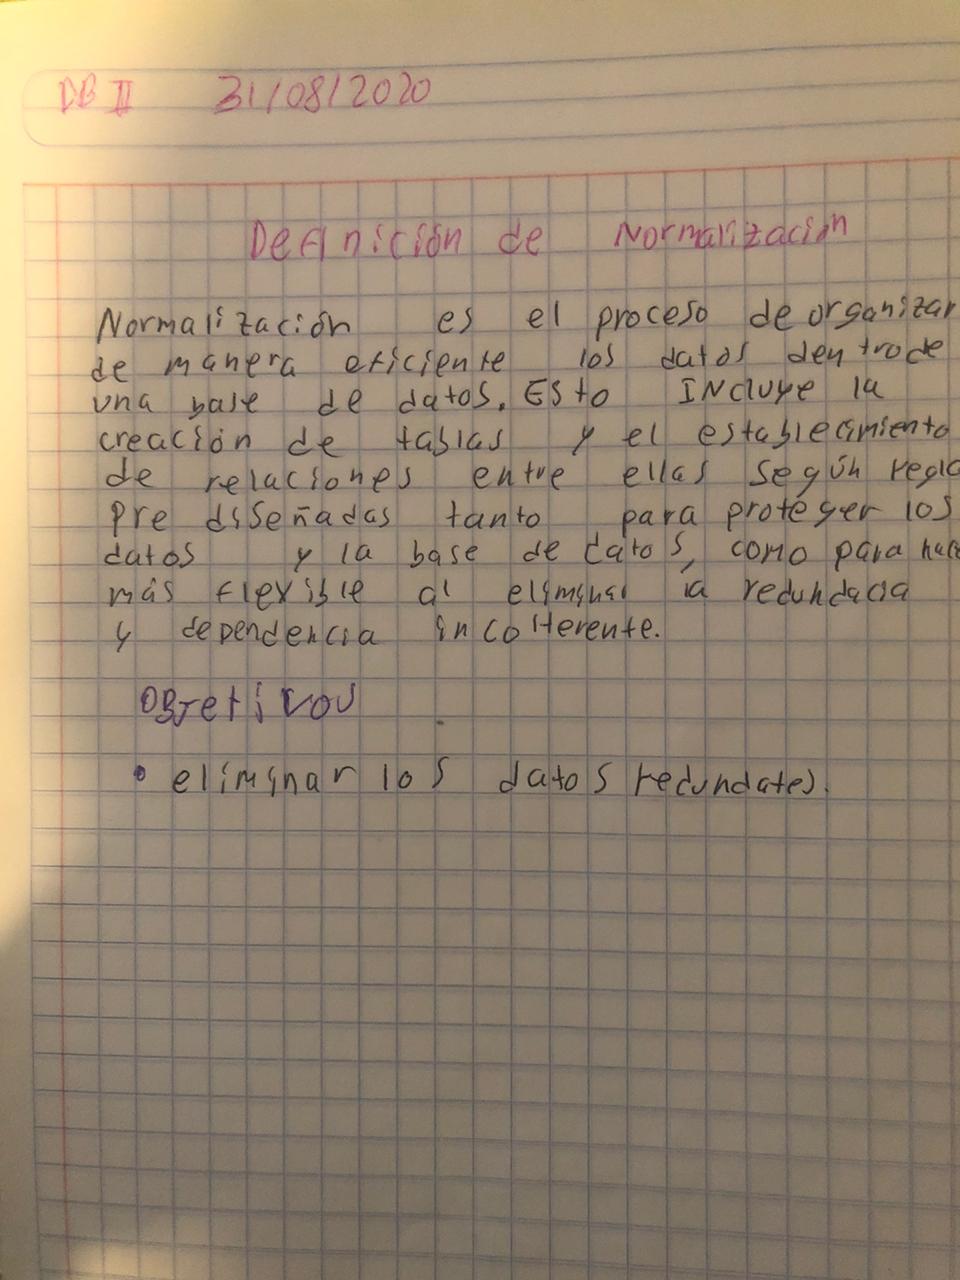 DB II 31/08/2020
Definición de Normalización
Normalización es el proceso de organizar
de manera eficiente los datos dentro de
una base de datos. Esto INcluye la
creación de tablas y el establecimiento
de relaciones entre ellas según regla
Pre diseñadas tanto para proteger los
datos y la base de datos, como para hace
más flexible al eliminar la redundacia
y dependencia incoherente.
OBJetivos
• eliminar los datos redundates.